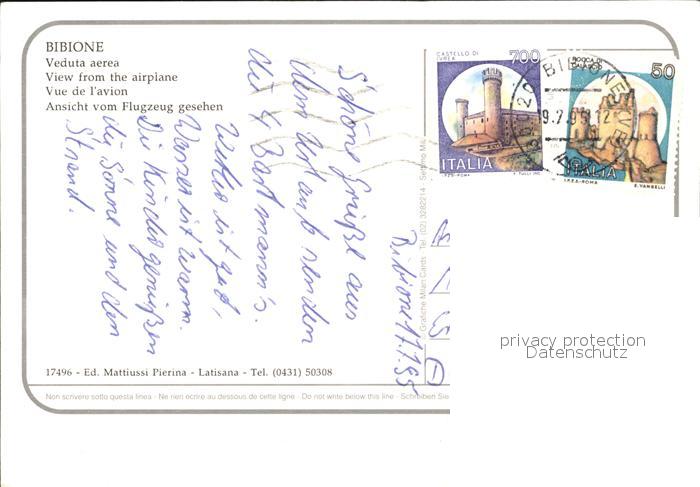 BIBIONE
Veduta aerea
View from the airplane
Vue de l'avion
Ansicht vom Flugzeug gesehen
CASTELLO DI
IVREA
700
ITALIA
I.P.Z.S.-ROMA
ROCCA DI
50
ITALIA
I.P.Z.S.-ROMA
E. VANGELLI
BIBIONE
Bibione 17.7.95
Schöne Grüße aus
dem Urlaub senden
die 4 Bartmann's.
Wetter ist gut,
Wasser ist warm.
Die Kinder genießen
die Sonne und den
Strand.
© Grafiche Milan Cards - Tel. (02) 3282214 - Settimo Mil
privacy protection
Datenschutz
17496 - Ed. Mattiussi Pierina - Latisana - Tel. (0431) 50308
Non scrivere sotto questa linea - Ne rien ecrire au dessous de cette ligne - Do not write below this line - Schreiben Sie